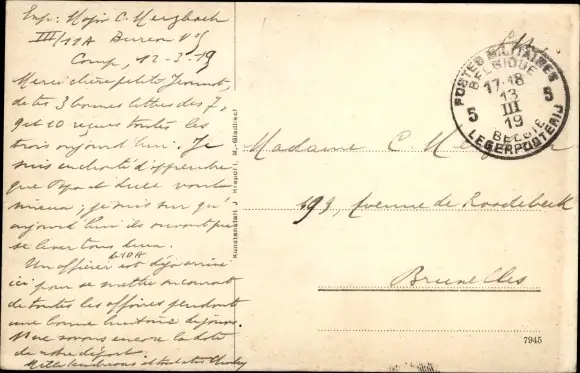 Exp: Major C. Merzbach
III/12A Bureau N°5
Camp, 12-3-19
Merci chère petite Jeannot
de tes 3 bonnes lettres des 7,
9 et 10 reçues toutes les
trois aujourd'hui. Je
suis enchanté d'apprendre
que Papa et Lucie vont
mieux; je suis sûr qu'
aujourd'hui ils auront pu
se lever tous deux.
Un officier est déjà arrivé
ici pour se mettre au courant
de toutes les affaires pendant
une bonne huitaine de jours.
Nous encore la date
de notre départ.
Kunstanstalt J. Krapohl, M.-Gladbach
Eff.
POSTES MILITAIRES
BELGIQUE
17-18
13
III
19
5 5
BELGIE
LEGERPOSTERIJ
Madame C.
193, Avenue de Roodebeek
Bruxelles
7945